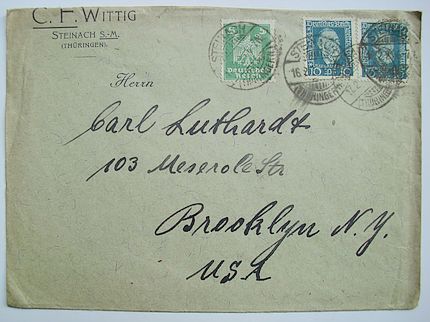 C. F. WITTIG
STEINACH S.-M.
(THÜRINGEN)
5
Deutsches
Reich
Deutsches Reich
10
STEINACH
(THÜRINGEN)
Herrn
Carl Luthardt
103 Meserole Str
Brooklyn N.Y.
USA